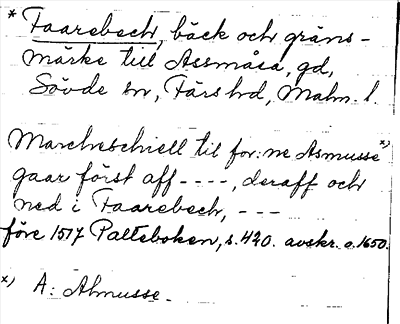 * Faarebech, bäck och gräns-
märke till Assmåsa, gd,
Sövde sn, Färs hd, Malm. l.
Marcheschiell til for:ne Asmusse x)
gaar först aff ----, deraff och
ned i Faarebech, ---
före 1517 Palteboken, s. 420. avskr. o. 1650.
x) A: Almusse.